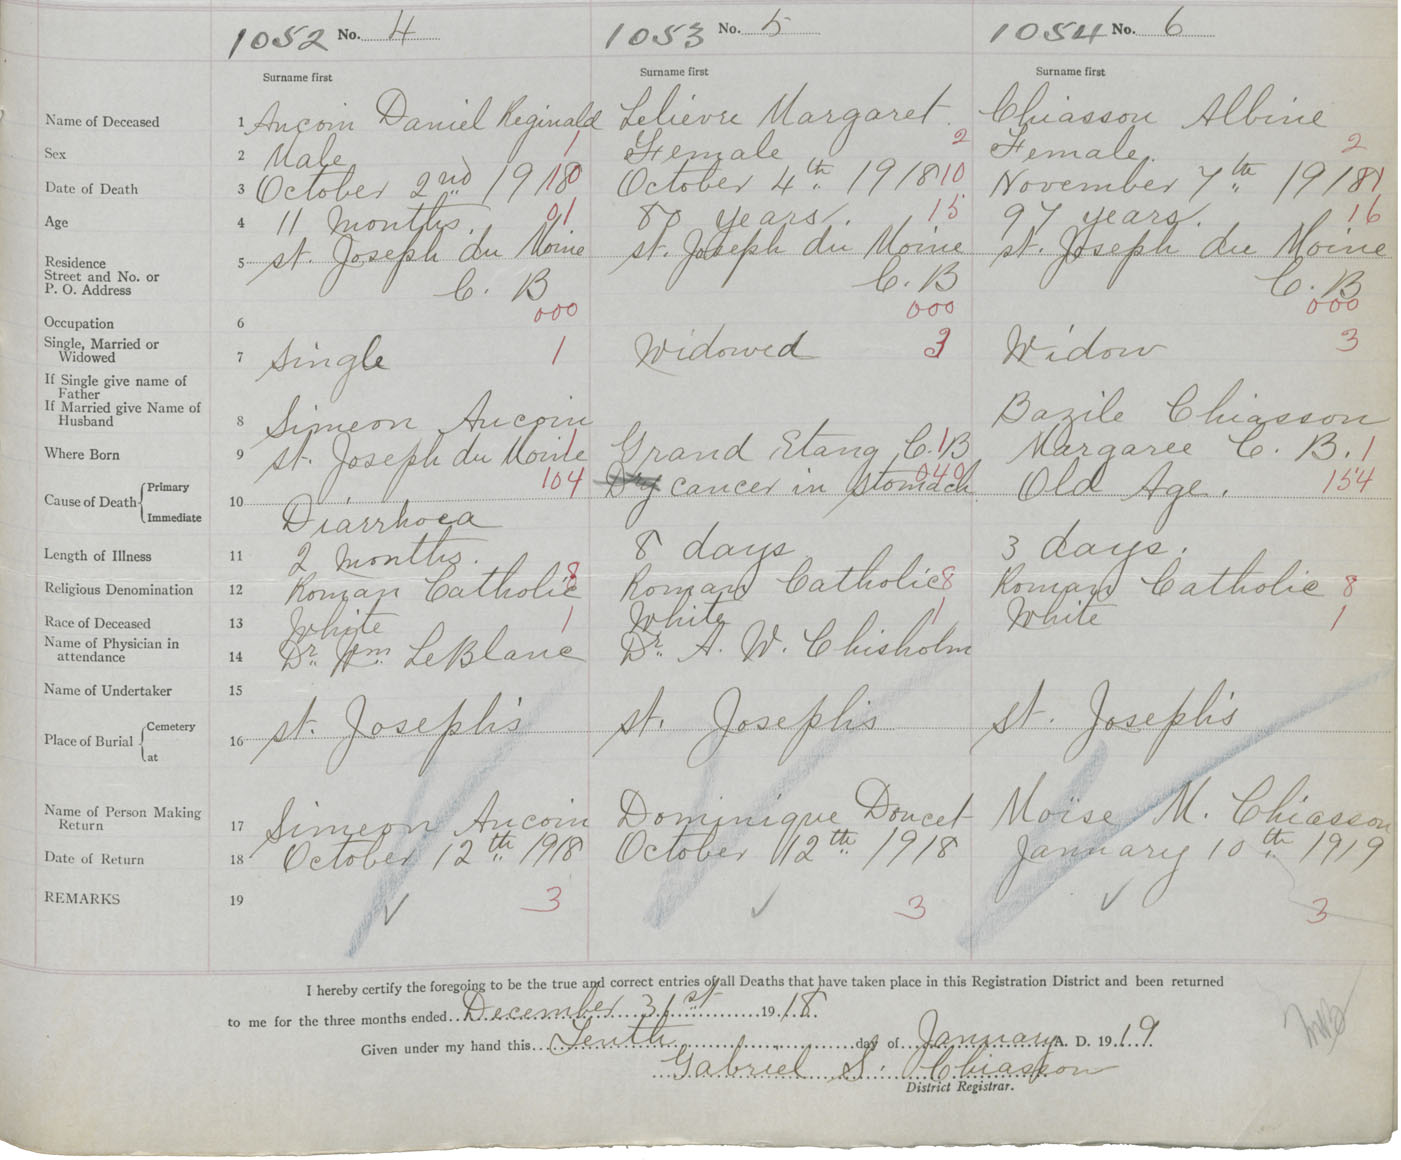 1052 No. 4 1053 No. 5 1054 No. 6
Surname first Surname first Surname first
Name of Deceased 1 Aucoin Daniel Reginald Lelievre Margaret. Chiasson Albine
Sex 2 Male 1 Female 2 Female. 2
Date of Death 3 October 2nd 1918 10 October 4th 1918 10 November 7th 1918 11
Age 4 11 months. 01 80 years. 15 97 years. 16
Residence
Street and No. or
P. O. Address
5 St. Joseph du Moine St. Joseph du Moine St. Joseph du Moine
C. B C. B C. B
Occupation 6 000 000 000
Single, Married or
Widowed
7 Single 1 Widowed 3 Widow 3
If Single give name of
Father
If Married give Name of
Husband
8 Simeon Aucoin Bazile Chiasson
Where Born 9 St. Joseph du Moine 1 Grand Etang C. B 1 Margaree C. B. 1
Cause of Death Primary 104 Dry cancer in Stomach 040 Old Age. 154
Immediate 10 Diarrhoea
Length of Illness 11 2 months. 8 days 3 days.
Religious Denomination 12 Roman Catholic 8 Roman Catholic 8 Roman Catholic 8
Race of Deceased 13 White 1 White 1 White 1
Name of Physician in
attendance
14 Dr. Wm. LeBlanc Dr. A. W. Chisholm
Name of Undertaker 15
Place of Burial Cemetery
at
16 St. Joseph's St. Joseph's St. Joseph's
Name of Person Making
Return
17 Simeon Aucoin Dominique Doucet Moïse M. Chiasson
Date of Return 18 October 12th 1918 October 12th 1918 January 10th 1919
REMARKS 19 3 3 3
I hereby certify the foregoing to be the true and correct entries of all Deaths that have taken place in this Registration District and been returned
to me for the three months ended December 31st 1918.
Given under my hand this Tenth day of January A. D. 1919
Gabriel S. Chiasson
District Registrar.